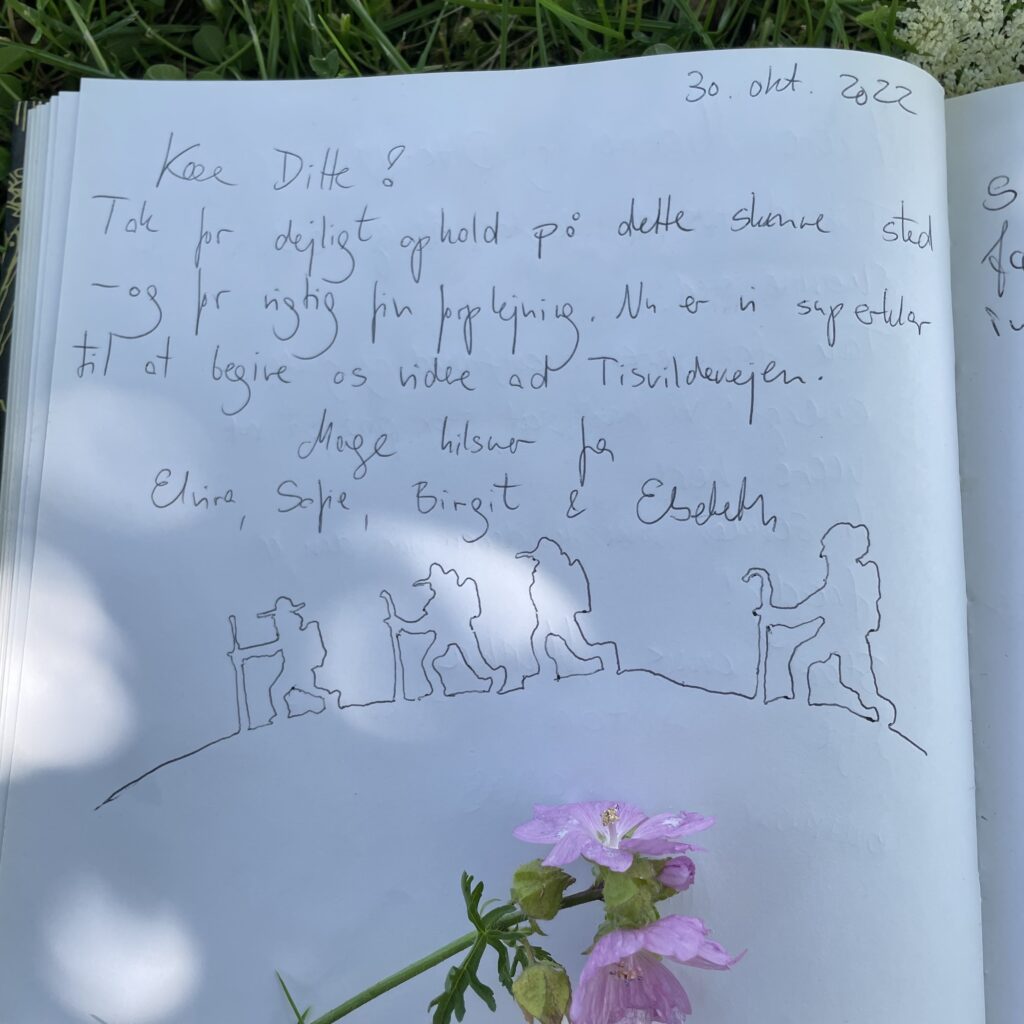 30. okt. 2022
Kære Ditte!
Tak for dejligt ophold på dette skønne sted
- og for rigtig fin forplejning. Nu er vi superklar
til at begive os videre ad Tisvildevejen.
Mage hilsner fra
Elvira, Sofie, Birgit & Elsebeth